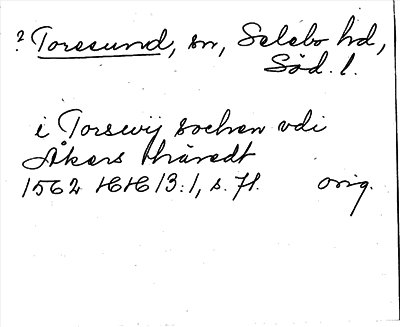 ? Toresund, sn, Selebo hd,
Söd. l.
i Torswij sochen vdi
Åkers häredt
1562 HH 13:1, s. 71. orig.